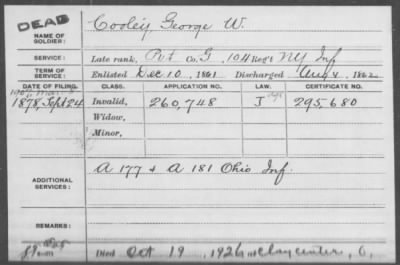 DEAD
NAME OF SOLDIER: Cooley George W.
SERVICE: Late rank, Pvt Co. G, 104 Reg't NY Inf
TERM OF SERVICE: Enlisted Dec 10, 1861 Discharged Aug 4, 1862
DATE OF FILING. CLASS. APPLICATION NO. LAW. CERTIFICATE NO.
1878, Sept 24 Invalid, 260,748 J 295,680
Widow,
Minor,
ADDITIONAL SERVICES: A 177 & A 181 Ohio Inf.
REMARKS:
Died Oct 19, 1926, at Clay Center, O,